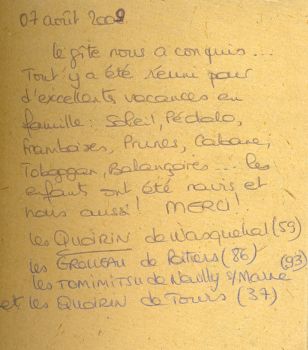 07 août 2009
le gîte nous a conquis...
Tout y a été réuni pour
d'excellents vacances en
famille : Soleil, Pédalo,
Framboises, Prunes, Cabane,
Toboggan, Balançoires... les
enfants ont été ravis et
nous aussi ! MERCI !
les QUOIRIN de Wasquehal (59)
les GROLLEAU de Poitiers (86)
les TOMIMITSU de Neuilly s/Marne (93)
et les QUOIRIN de Tours (37)